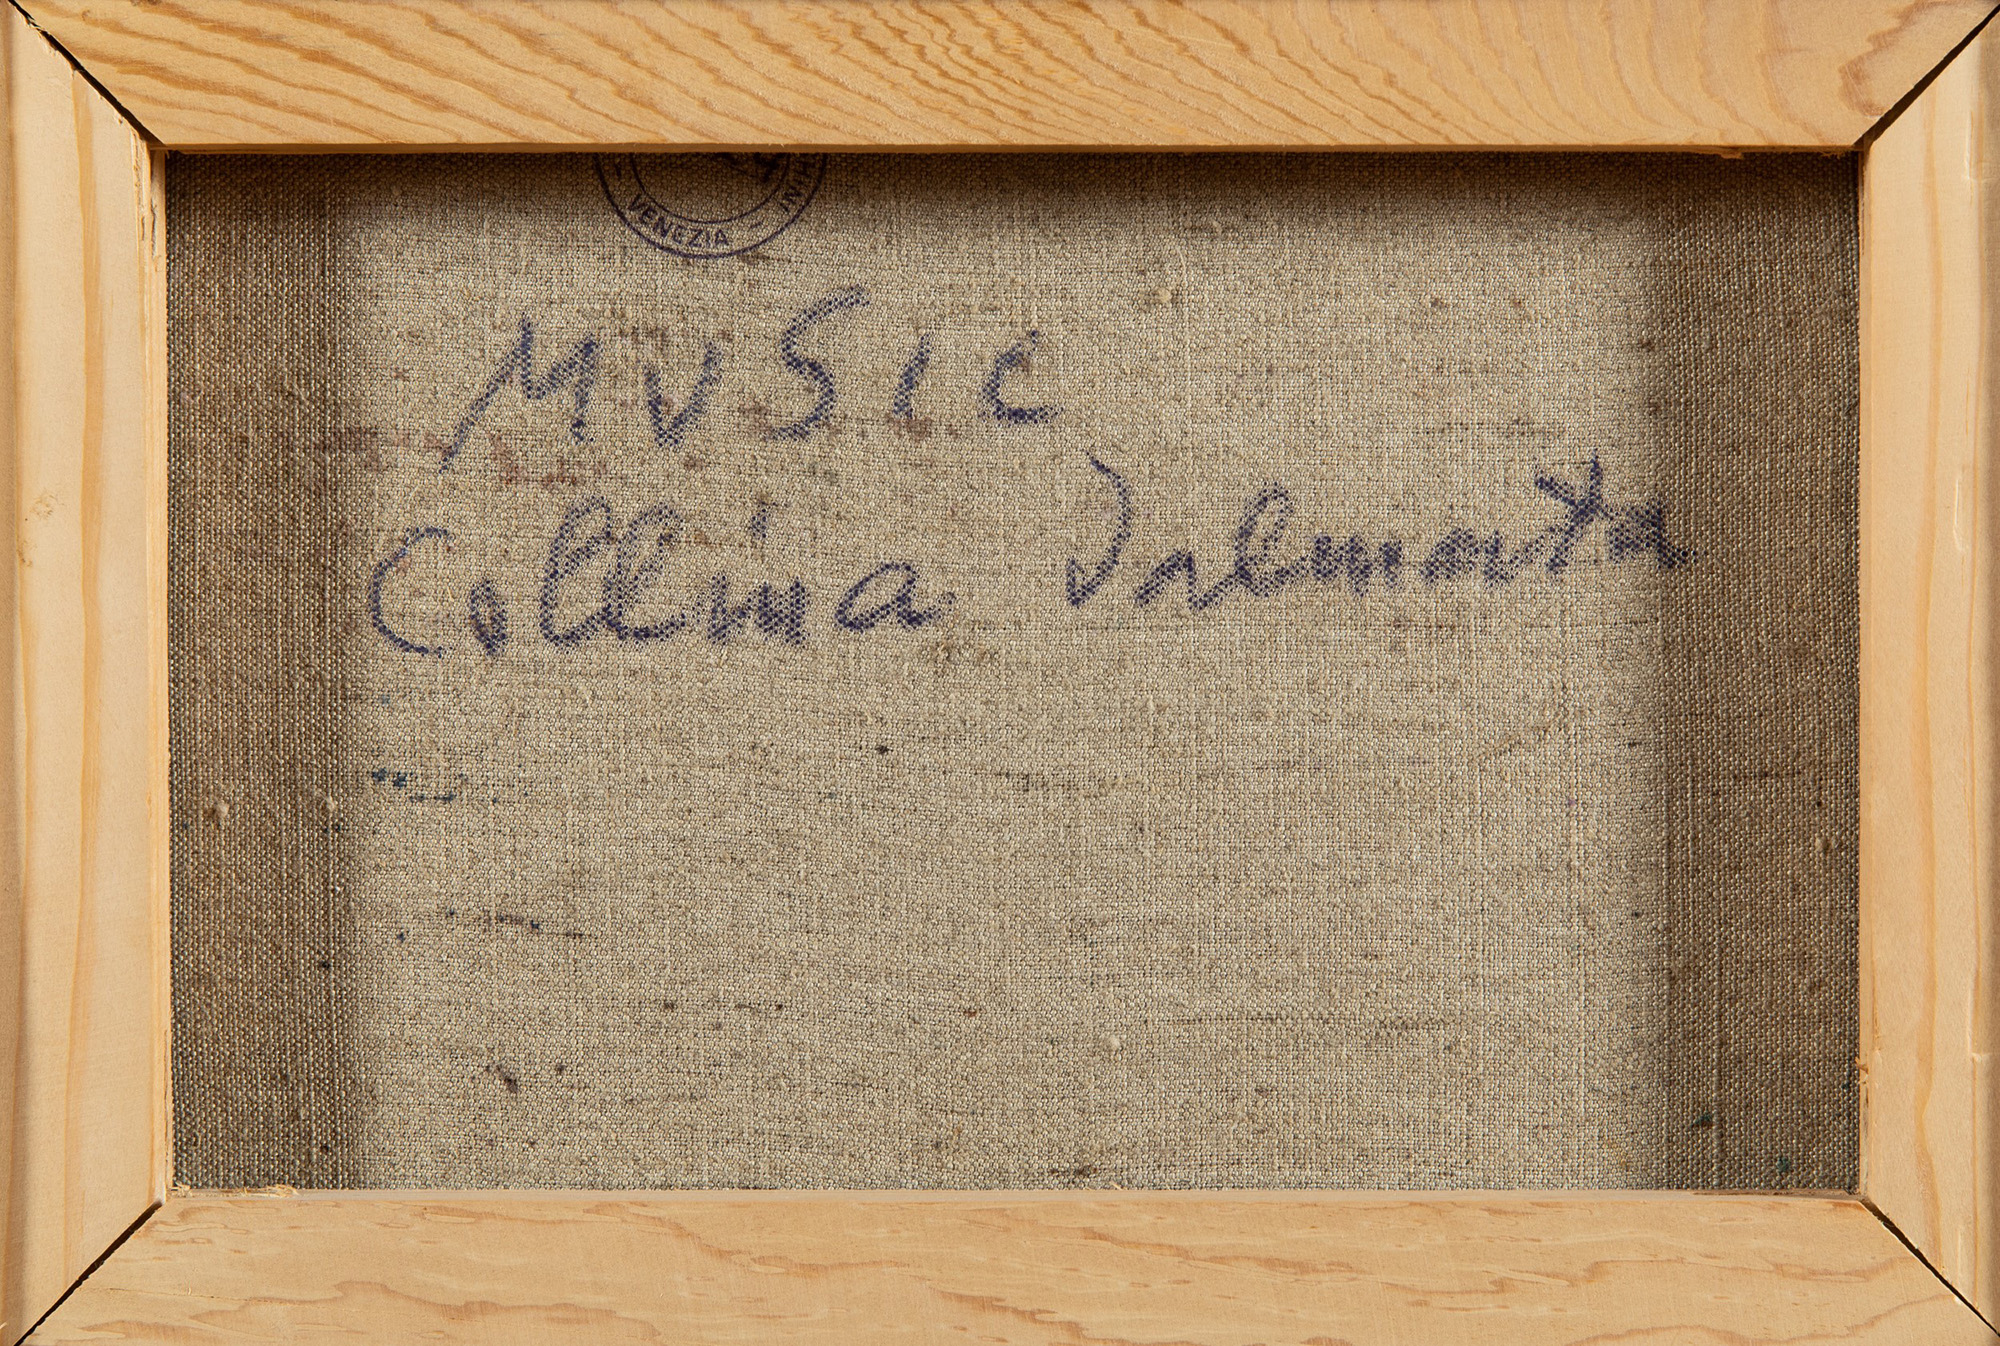 HINI - VENEZIA -
MUSIC
Collina Dalmata